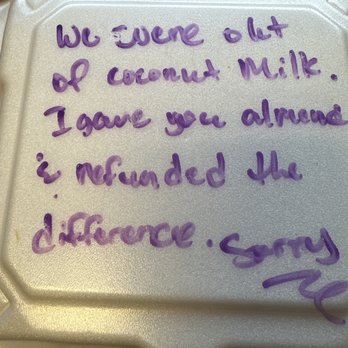 We were out
of coconut Milk.
I gave you almond
& refunded the
difference. Sorry